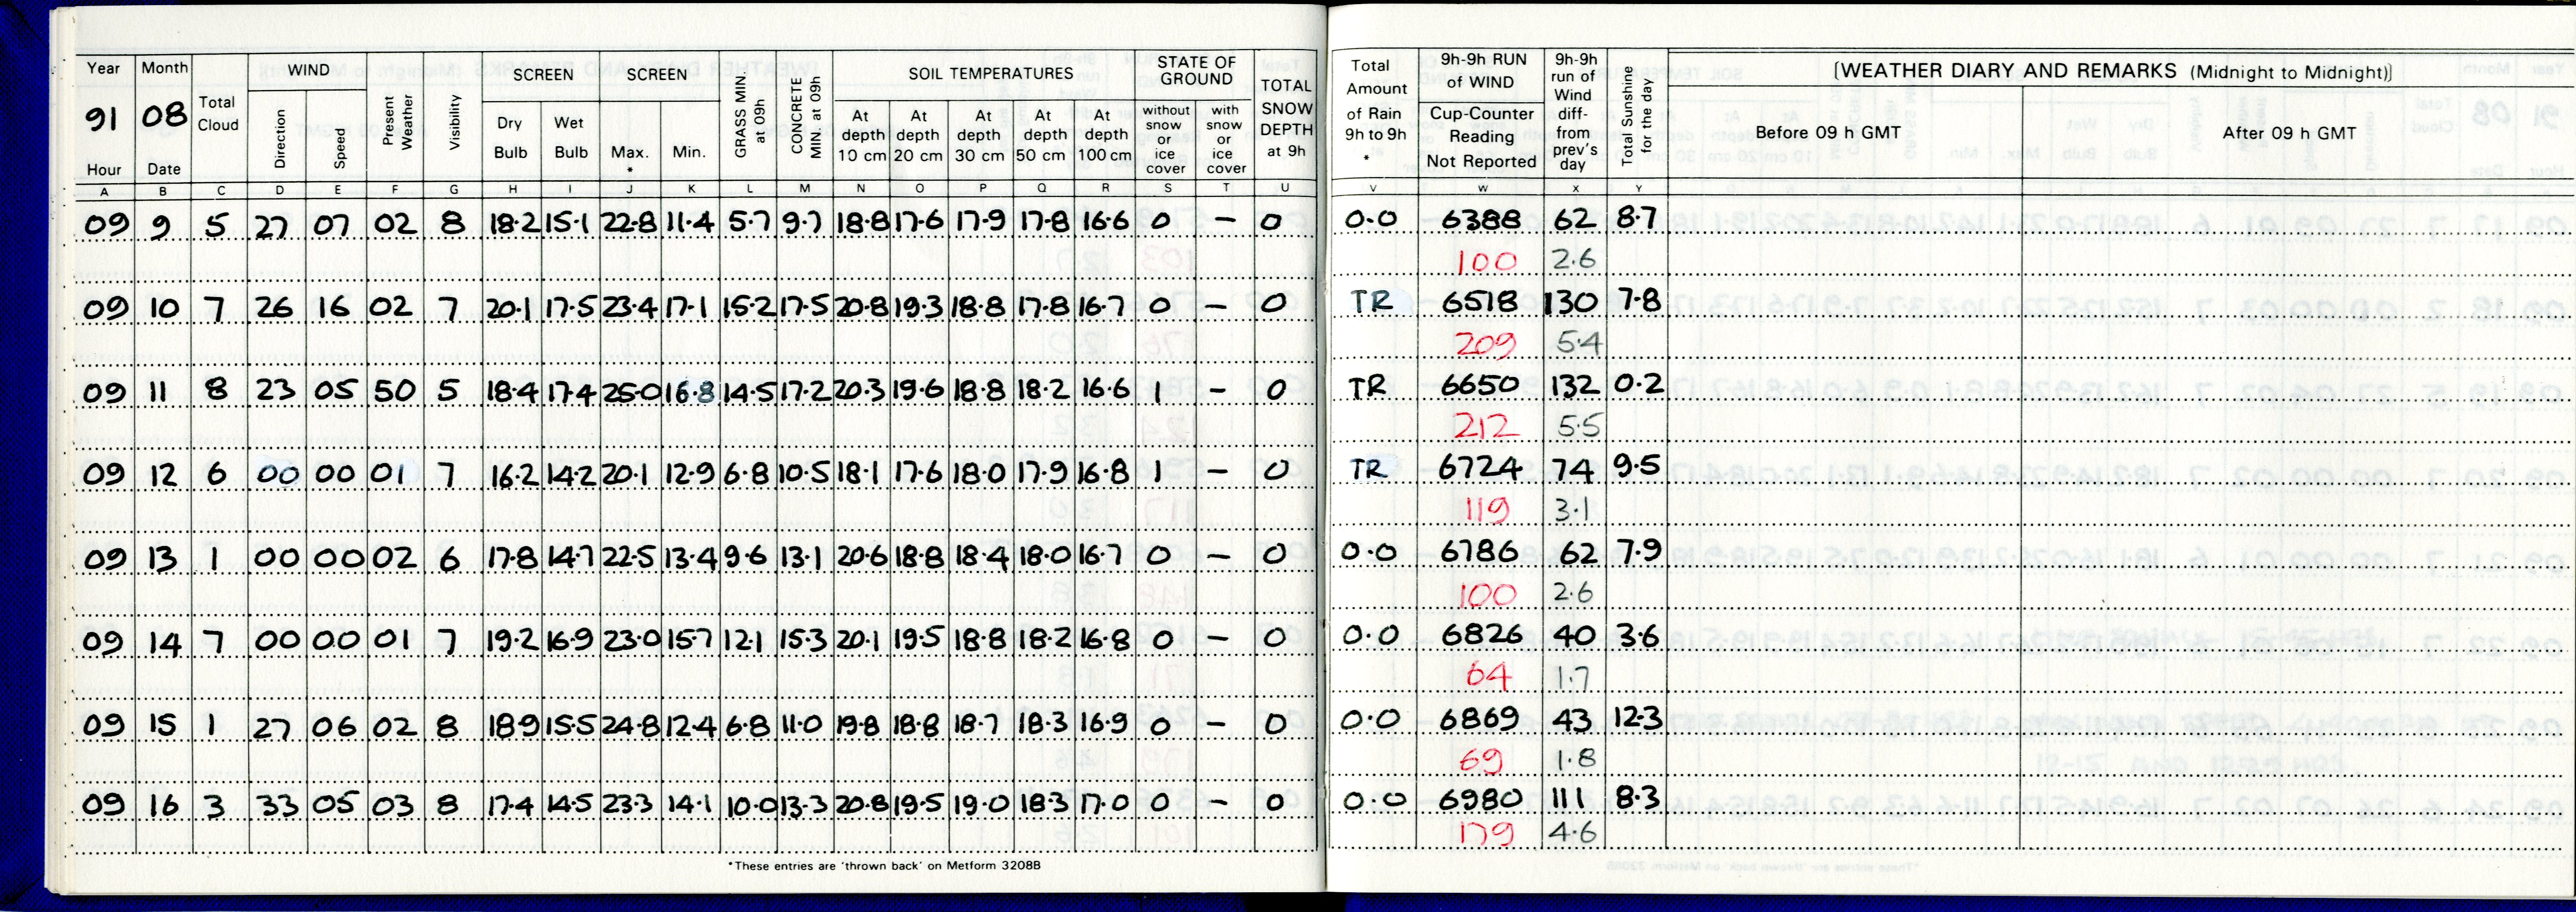 Year Month Total Cloud WIND Present Weather Visibility SCREEN SCREEN GRASS MIN at 09h CONCRETE MIN at 09h SOIL TEMPERATURES STATE OF GROUND TOTAL SNOW DEPTH at 9h Total Amount of Rain 9h to 9h * 9h-9h RUN of WIND 9h-9h run of Wind diff- from prev's day Total Sunshine for the day [WEATHER DIARY AND REMARKS (Midnight to Midnight)]
91 08 Direction Speed Dry Bulb Wet Bulb Max. * Min. At depth 10 cm At depth 20 cm At depth 30 cm At depth 50 cm At depth 100 cm without snow or ice cover with snow or ice cover Cup-Counter Reading Not Reported Before 09 h GMT After 09 h GMT
Hour Date
A B C D E F G H I J K L M N O P Q R S T U V W X Y
09 9 5 27 07 02 8 18.2 15.1 22.8 11.4 5.7 9.7 18.8 17.6 17.9 17.8 16.6 0 – 0 0.0 6388 62 8.7
100 2.6
09 10 7 26 16 02 7 20.1 17.5 23.4 17.1 15.2 17.5 20.8 19.3 18.8 17.8 16.7 0 – 0 TR 6518 130 7.8
209 5.4
09 11 8 23 05 50 5 18.4 17.4 25.0 16.8 14.5 17.2 20.3 19.6 18.8 18.2 16.6 1 – 0 TR 6650 132 0.2
212 5.5
09 12 6 00 00 01 7 16.2 14.2 20.1 12.9 6.8 10.5 18.1 17.6 18.0 17.9 16.8 1 – 0 TR 6724 74 9.5
119 3.1
09 13 1 00 00 02 6 17.8 14.7 22.5 13.4 9.6 13.1 20.6 18.8 18.4 18.0 16.7 0 – 0 0.0 6786 62 7.9
100 2.6
09 14 7 00 00 01 7 19.2 16.9 23.0 15.7 12.1 15.3 20.1 19.5 18.8 18.2 16.8 0 – 0 0.0 6826 40 3.6
64 1.7
09 15 1 27 06 02 8 18.9 15.5 24.8 12.4 6.8 11.0 19.8 18.8 18.7 18.3 16.9 0 – 0 0.0 6869 43 12.3
69 1.8
09 16 3 33 05 03 8 17.4 14.5 23.3 14.1 10.0 13.3 20.8 19.5 19.0 18.3 17.0 0 – 0 0.0 6980 111 8.3
179 4.6
*These entries are 'thrown back' on Metform 3208B